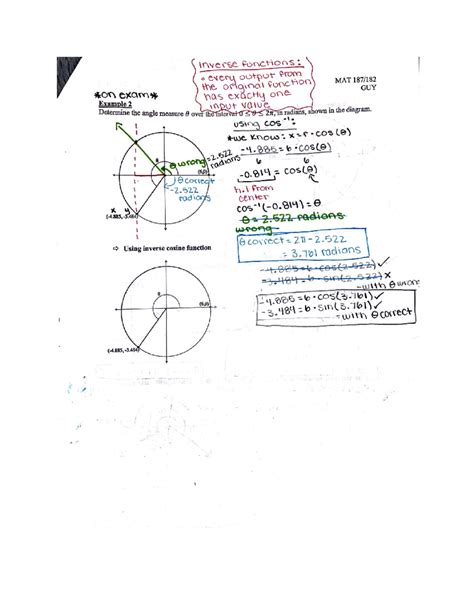 Inverse functions:
* every output from
the original function
has exactly one
input value
MAT 187/182
GUY
*on exam*
Example 2
Determine the angle measure θ over the interval 0 ≤ θ ≤ 2π, in radians, shown in the diagram.
using cos⁻¹:
*we know: x=r·cos(θ)
-4.885=6·cos(θ)
6 6
-0.814 = cos(θ)
θ wrong=2.522
radians
(6,0)
θ correct
-2.522
radians
x y
(-4.885, -3.484)
h,l from
center
cos⁻¹(-0.814)=θ
θ = 2.522 radians
wrong
θ correct = 2π - 2.522
= 3.761 radians
⇒ Using inverse cosine function
-4.885=6·cos(2.522)✓
-3.484=6·sin(2.522)x
-with θ wrong
-4.885=6·cos(3.761)✓
-3.484=6·sin(3.761)✓
-with θ correct
θ
(6,0)
(-4.885, -3.484)